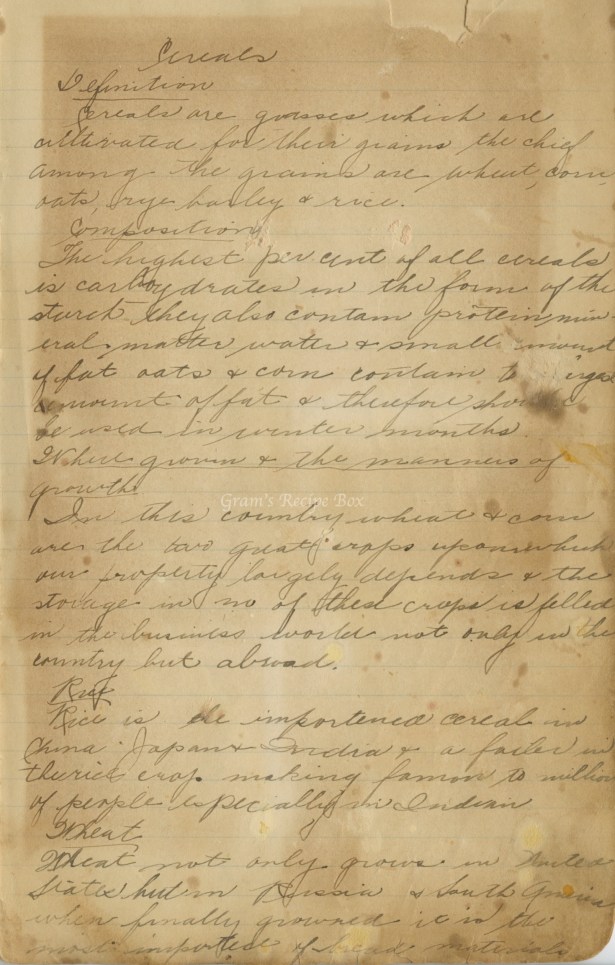 Cereals
Definition
Cereals are grasses which are
cultivated for their grains the chief
among the grains are wheat, corn,
oats, rye barley & rice.
Composition
The highest per cent of all cereals
is carbohydrates in the form of the
starch they also contain protein, min-
eral matter water & small amount
of fat oats & corn contain
amount of fat & therefore should
be used in winter months
Where grown & the manners of
growth
Gram's Recipe Box
In this country wheat & corn
are the two great crops upon which
our property largely depends & the
storage in no of these crops is felled
in the business world not only in the
country but abroad.
Rice
Rice is the importened cereal in
China Japan & India & a failer in
the rice crop making famon to million
of people especially in Indian
Wheat
Wheat not only grows in United
States but in Russia & South America
when finally growned it is the
most of bread materials